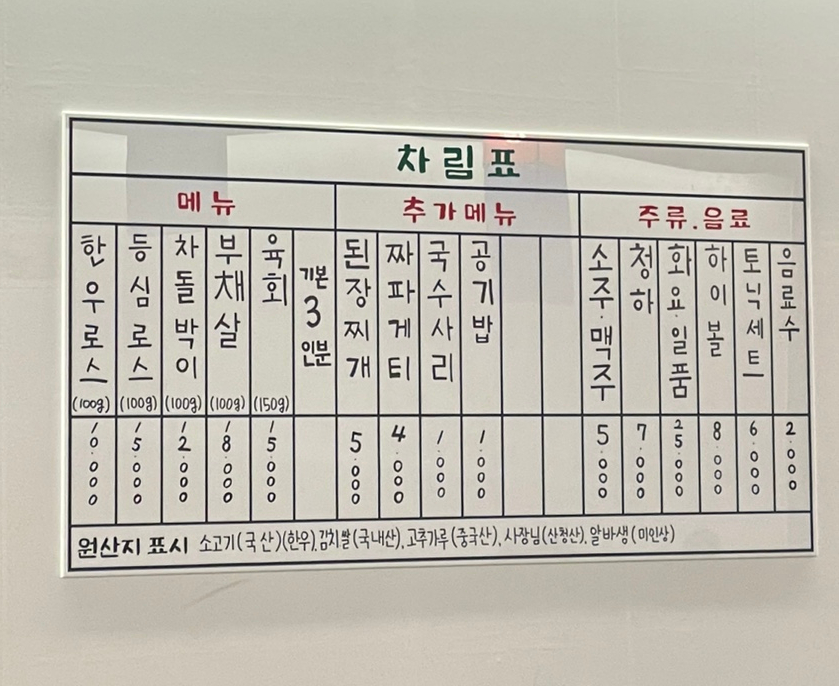 차림표
메뉴
추가메뉴
주류.음료
한우로스 (100g) 10.000
등심로스 (100g) 15.000
차돌박이 (100g) 12.000
부채살 (100g) 18.000
육회 (150g) 15.000
기본 3인분
된장찌개 5.000
짜파게티 4.000
국수사리 1.000
공기밥 1.000
소주.맥주 5.000
청하 7.000
화요.일품 25.000
하이볼 8.000
토닉세트 6.000
음료수 2.000
원산지 표시 소고기(국산)(한우), 김치쌀(국내산), 고추가루(중국산), 사장님(산청산), 알바생(미인상)